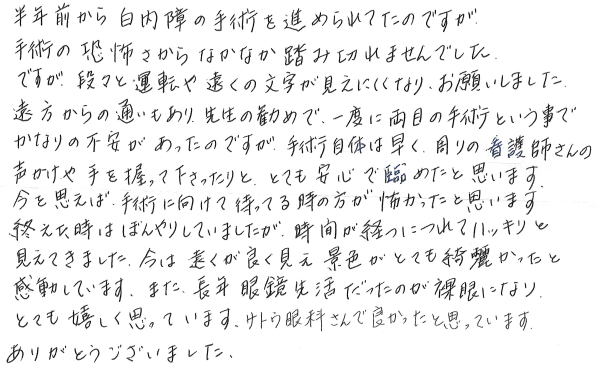 半年前から白内障の手術を進められてたのですが
手術の恐怖さからなかなか踏み切れませんでした。
ですが、段々と運転や遠くの文字が見えにくくなり、お願いしました。
遠方からの通いもあり、先生の勧めで、一度に両目の手術という事で
かなりの不安があったのですが、手術自体は早く、周りの看護師さんの
声かけや手を握って下さったりと、とても安心で臨めたと思います。
今を思えば、手術に向けて待ってる時の方が怖かったと思います。
終えた時はぼんやりしていましたが、時間が経つにつれてハッキリと
見えてきました。今は遠くが良く見え景色がとても綺麗かったと
感動しています。また、長年眼鏡先活だったのが裸眼になり、
とても嬉しく思っています。サトウ眼科さんで良かったと思っています。
ありがとうございました。